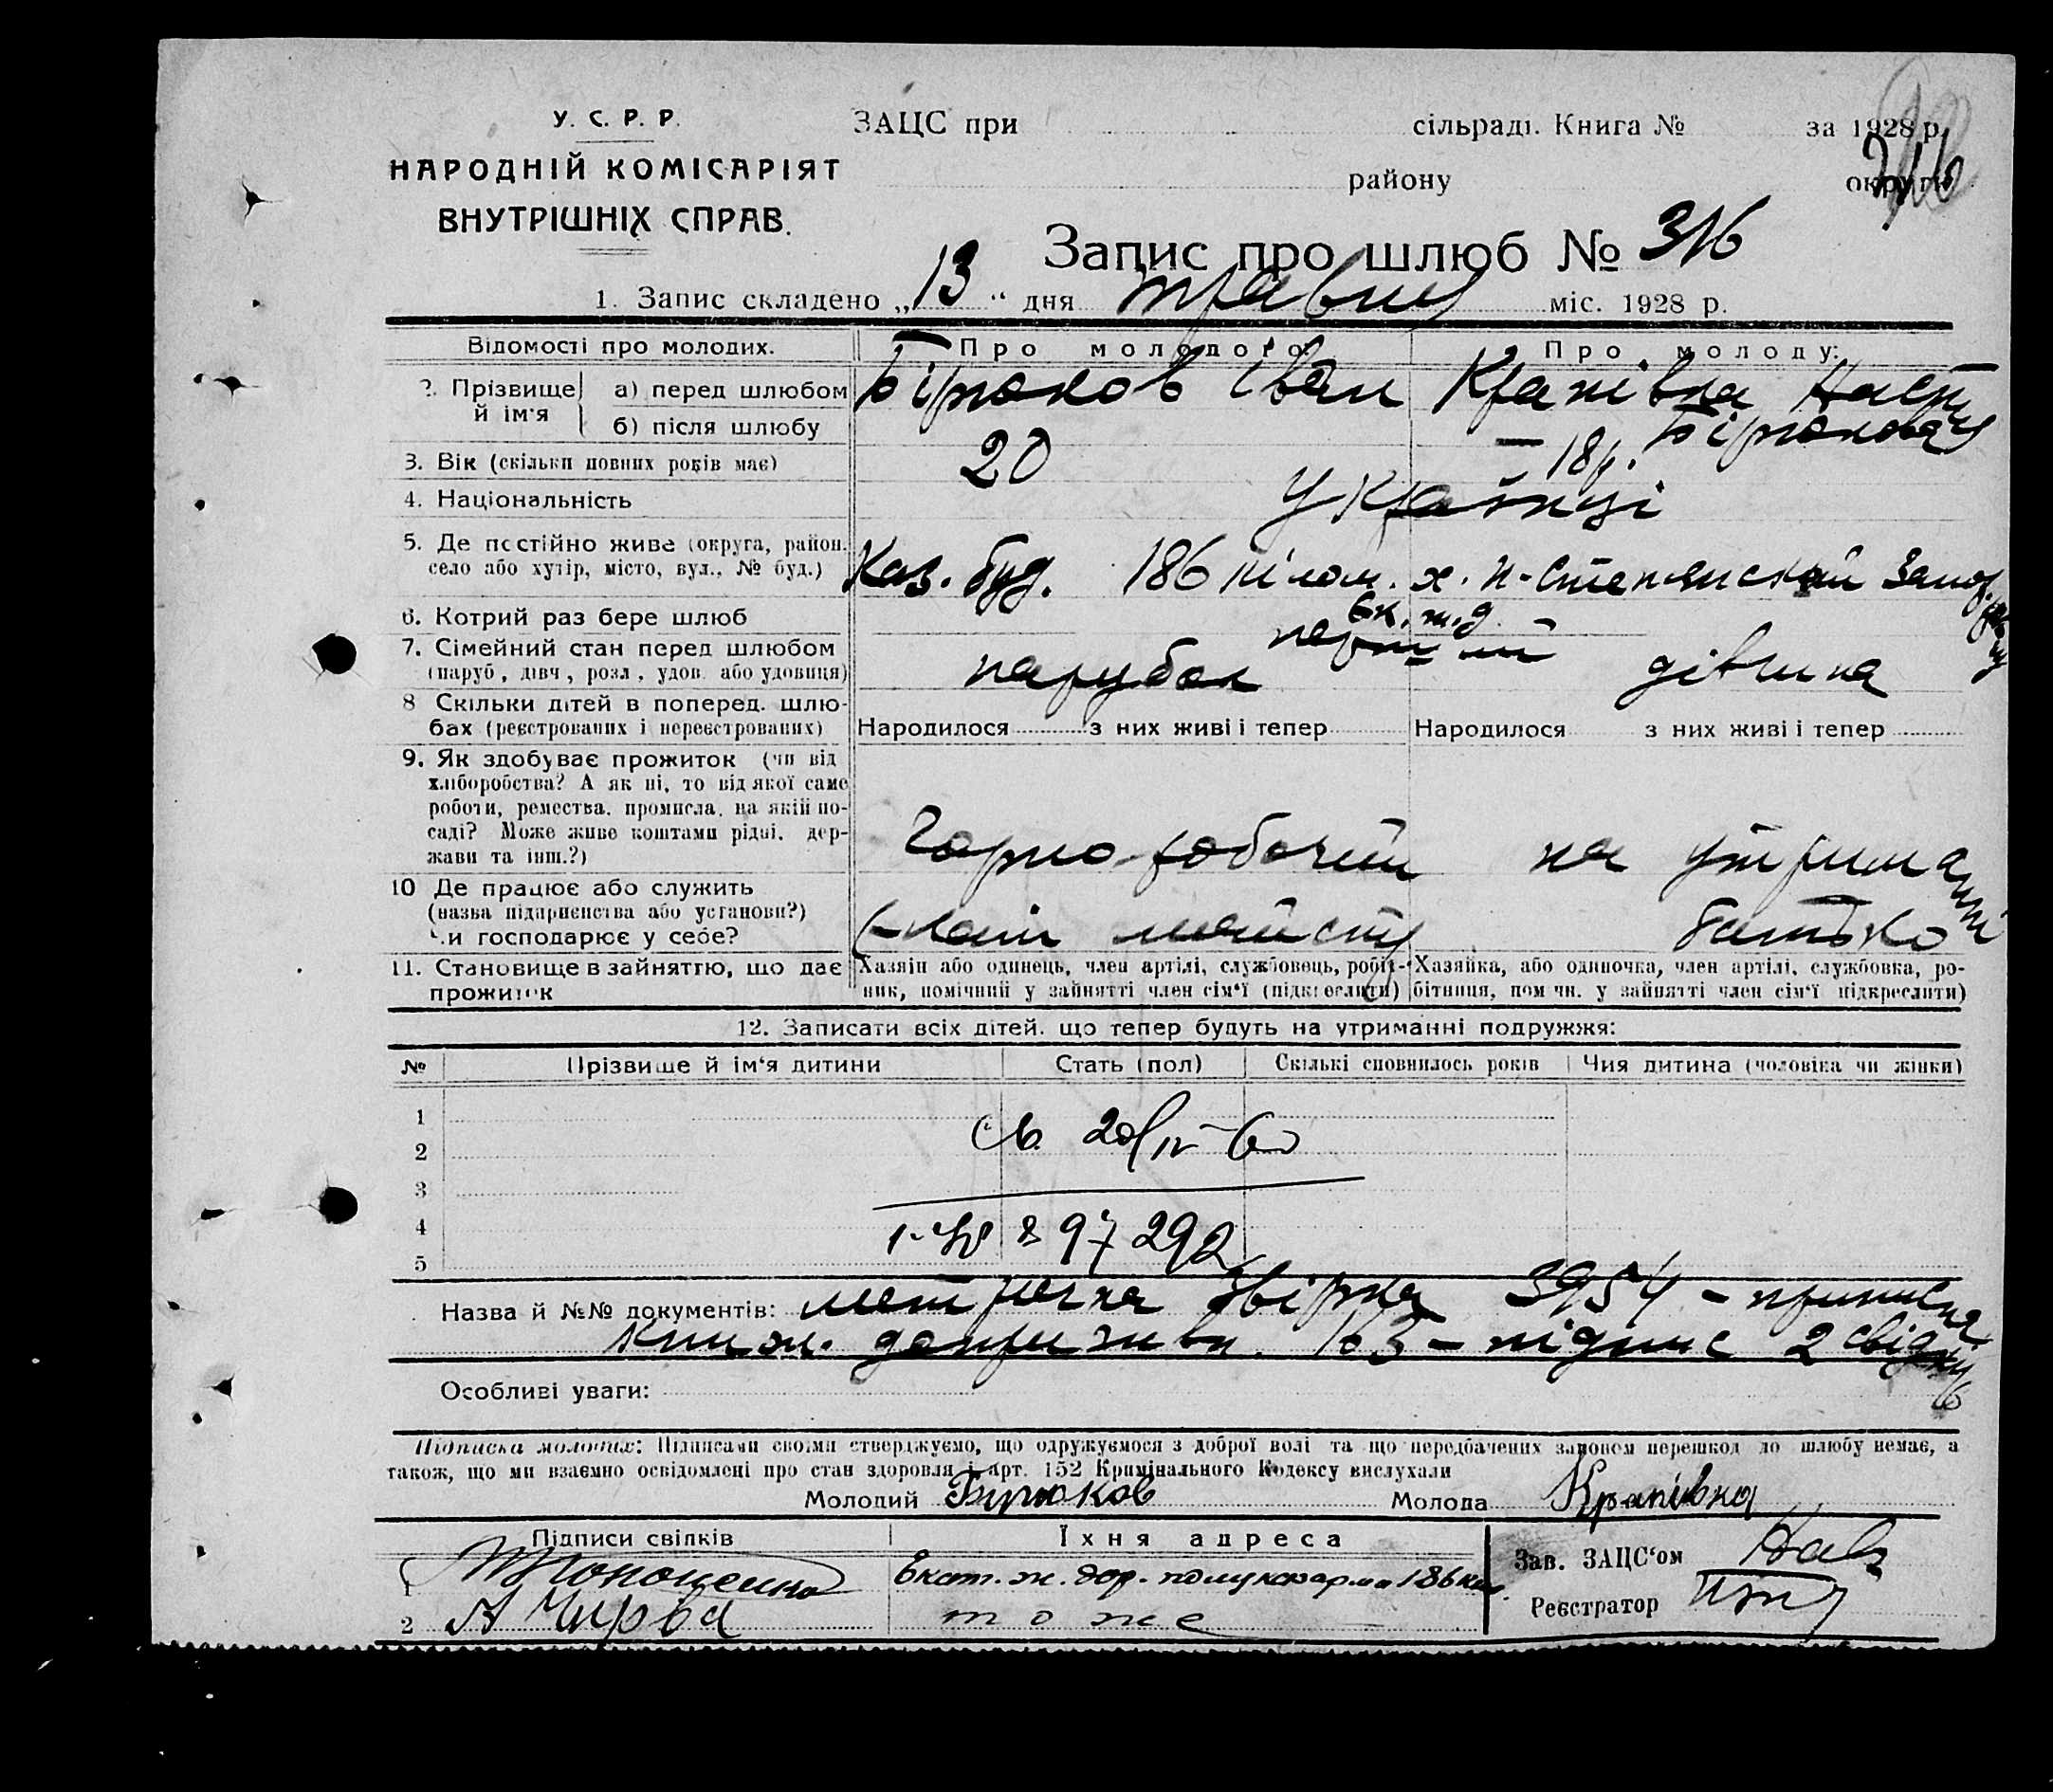 У. С. Р. Р.
НАРОДНІЙ КОМІСАРІЯТ
ВНУТРІШНІХ СПРАВ.
ЗАЦС при сільраді. Книга № за 1928 р.
району округи
Запис про шлюб № 316
1. Запис складено „13“ дня травня міс. 1928 р.
Відомості про молодих. Про молодого: Про молоду:
2. Прізвище й ім'я а) перед шлюбом Бірюков Іван Крапівка Настя
б) після шлюбу — Бірюкова
3. Вік (скільки повних років має) 20 18 р.
4. Національність Українці
5. Де постійно живе (округа, район, село або хутір, місто, вул., № буд.) Каз. буд. 186 кілом. х. Н-Степянский Запор.
Ек. ж. д.
6. Котрий раз бере шлюб перший
7. Сімейний стан перед шлюбом парубок дівчина
(паруб., дівч., розл., удов. або удовиця)
8 Скільки дітей в поперед. шлюбах (реєстрованих і нереєстрованих) Народилося з них живі і тепер Народилося з них живі і тепер
9. Як здобуває прожиток (чи від
хліборобства? А як ні, то від якої саме
роботи, ремества, промисла, на якій по-
саді? Може живе коштами рідні, дер-
жави та інш.?) Горно-робочий на утриманні
10 Де працює або служить
(назва підприємства або установи?)
Чи господарює у себе? батько
11. Становище в зайняттю, що дає прожиток
Хазяїн або одинець, член артілі, службовець, робіт-
ник, помічний у зайнятті член сім'ї (підкреслити)
Хазяйка, або одиночка, член артілі, службовка, ро-
бітниця, пом чн. у зайнятті член сім'ї підкреслити)
12. Записати всіх дітей, що тепер будуть на утриманні подружжя:
№ Прізвище й ім'я дитини Стать (пол) Скількі сповнилось років Чия дитина (чоловіка чи жінки)
1
2
3
4
5
20/IV-60
97292
Назва й №№ документів: метрична звірка 3954 - приписна
книж. допризивн. 163 - підпис 2 свідків
Особливі уваги:
Підписка молодих: Підписами своїми стверджуємо, що одружуємося з доброї волі та що передбачених законом перешкод до шлюбу немає, а
також, що ми взаємно освідомлені про стан здоровля і арт. 152 Кримінального Кодексу вислухали
Молодий Бирюков Молода Крапівка
Підписи свідків Їхня адреса
1 Екат. ж. дор. полуказарма 186 км.
2 А Чирва тоже
Зав. ЗАЦС'ом
Реєстратор